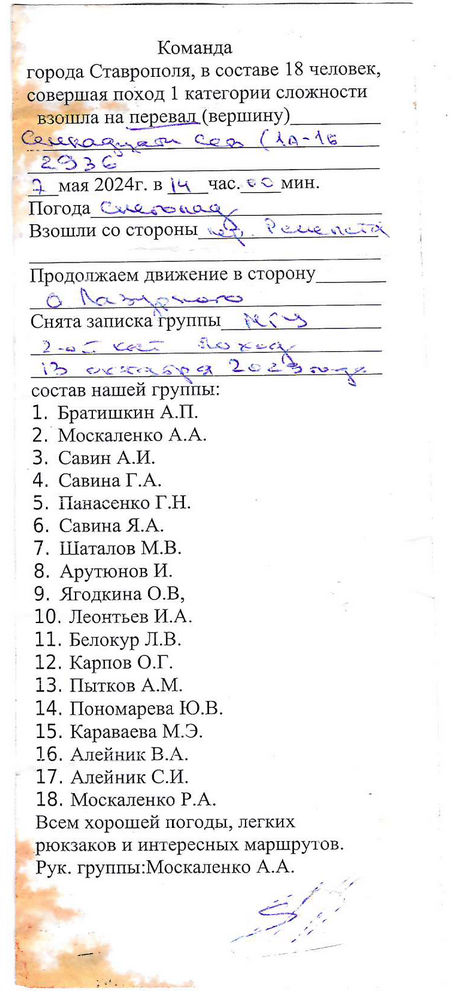 Команда
города Ставрополя, в составе 18 человек,
совершая поход 1 категории сложности
взошла на перевал (вершину)
(1А-1Б
2936
7 мая 2024г. в 14 час. 00 мин.
Погода Снегопад
Взошли со стороны пер.
Продолжаем движение в сторону
О Лазурного
Снята записка группы МГУ
2-ой кат поход
13 октября 2023 года
состав нашей группы:
1. Братишкин А.П.
2. Москаленко А.А.
3. Савин А.И.
4. Савина Г.А.
5. Панасенко Г.Н.
6. Савина Я.А.
7. Шаталов М.В.
8. Арутюнов И.
9. Ягодкина О.В,
10. Леонтьев И.А.
11. Белокур Л.В.
12. Карпов О.Г.
13. Пытков А.М.
14. Пономарева Ю.В.
15. Караваева М.Э.
16. Алейник В.А.
17. Алейник С.И.
18. Москаленко Р.А.
Всем хорошей погоды, легких
рюкзаков и интересных маршрутов.
Рук. группы:Москаленко А.А.